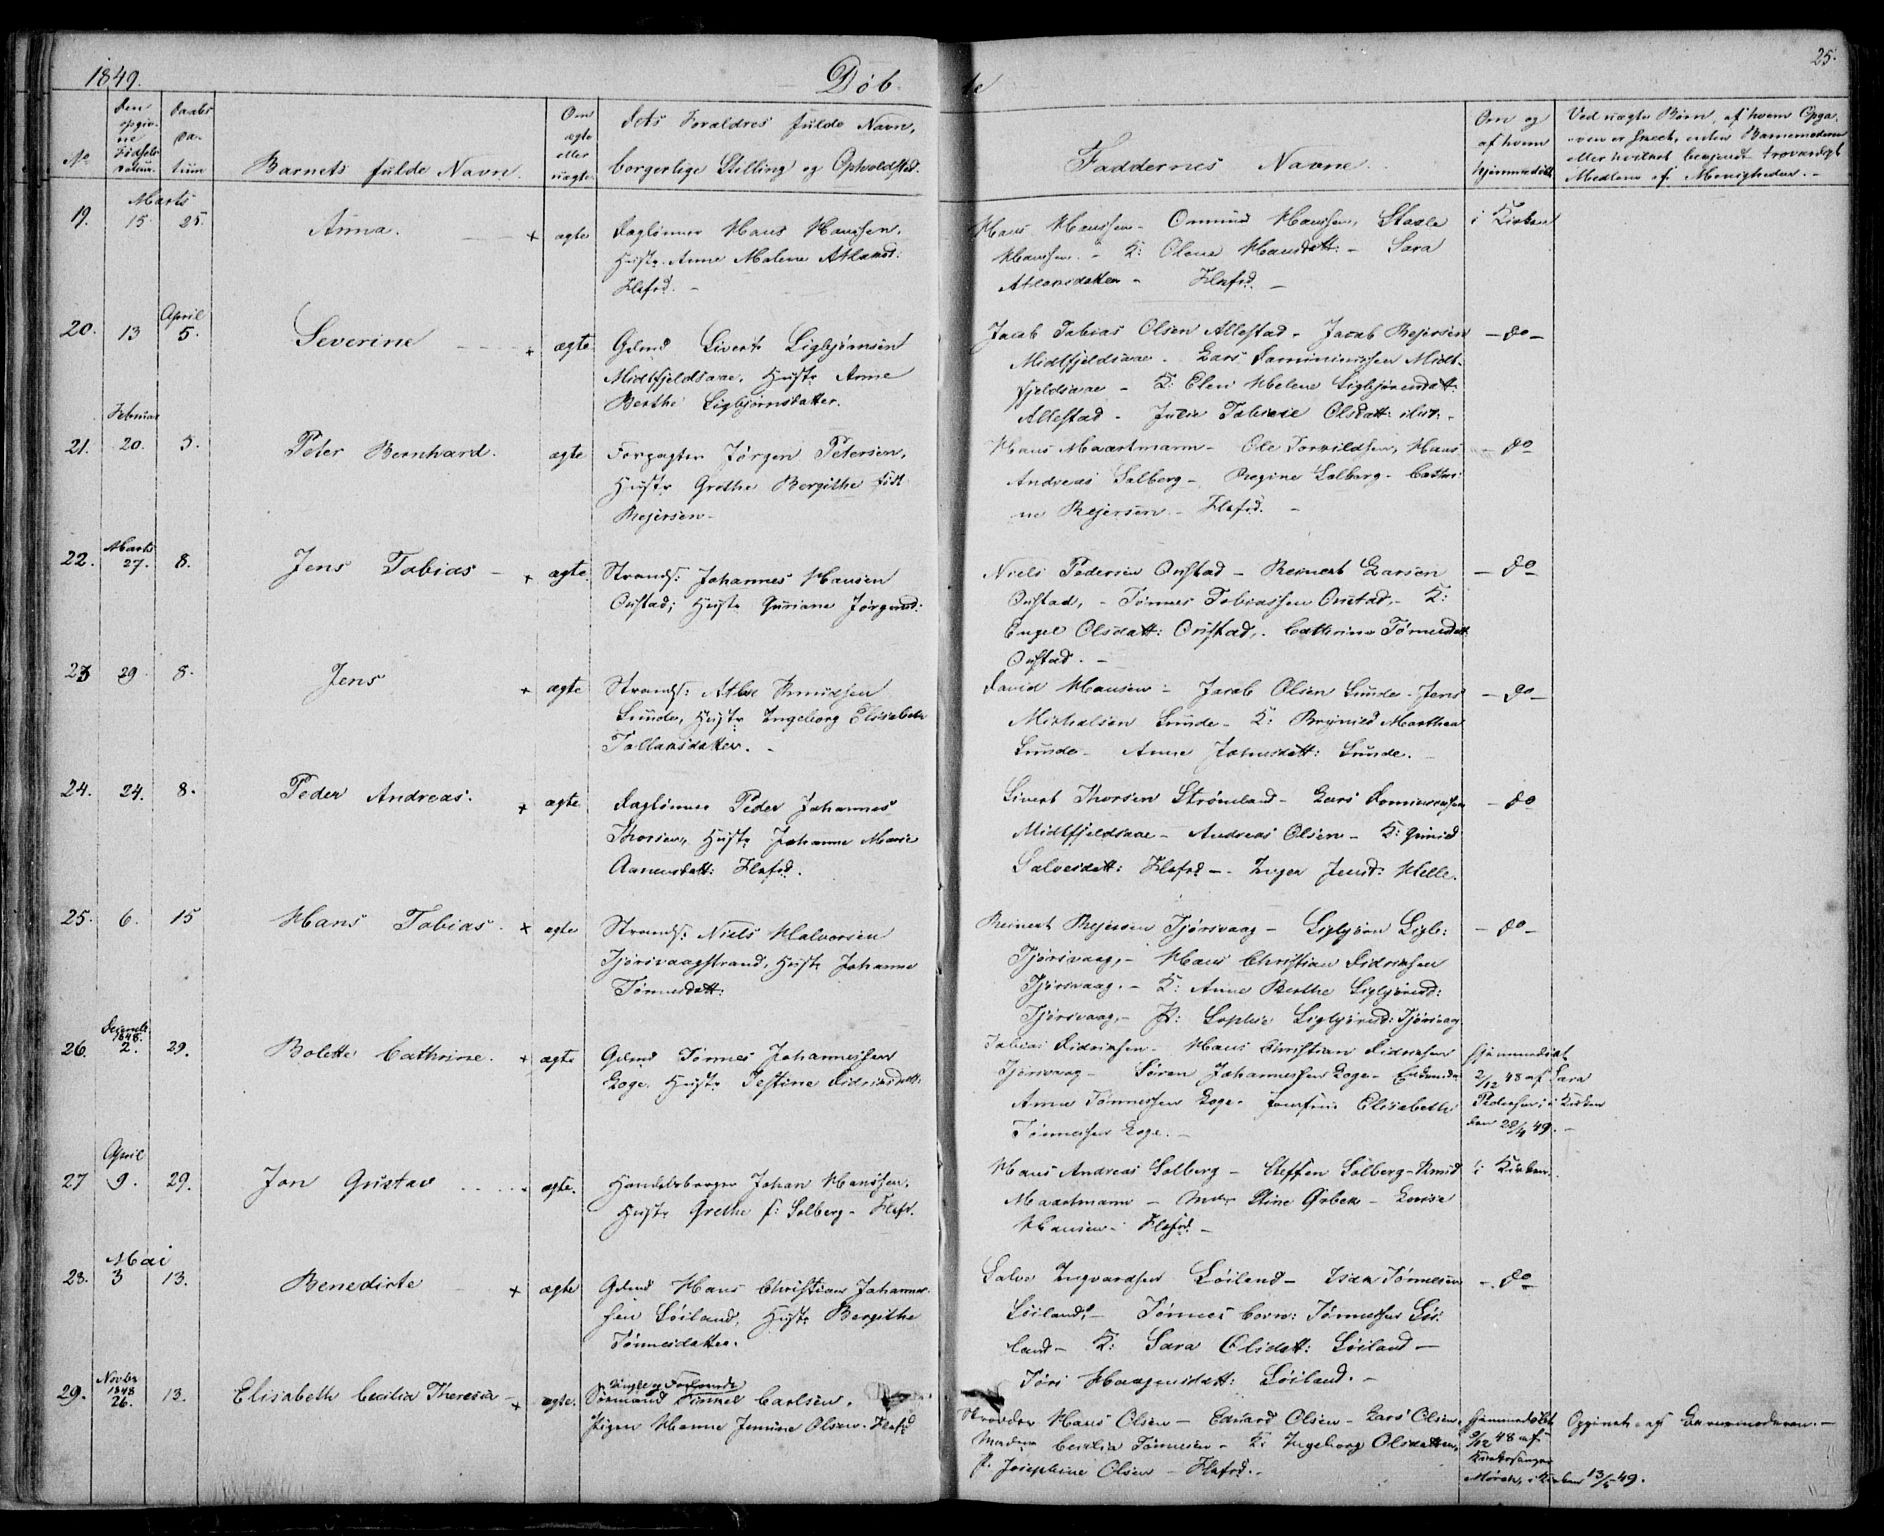 1849.
Døbte
25.
No
Den opgivne Fødsels-datum.
Daabs Da-tum
Barnets fulde Navn.
Om ægte eller uægte.
Dets Forældres fulde Navn,
borgerlige Stilling og Opholdsted.
Faddernes Navne.
Om og af hvem hjemmedøbt
Ved uægte Børn, af hvem Opga-
ven er skeet, enten Barnemoderen
eller hvilket bekjendt troværdigt
Medlem af Menigheden. -
19. Marts 15. 25. Anna. + ægte Dagleiner Hans Hanssen,
Hustr. Anne Malene Atlaksd:
Flefrd. -
Hans Hanssen - Ommund Hanssen, Staale
Hanssen. - K: Olene Hansdatt: - Sara
Atlaksdatter - Flefrd. -
i Kirken
20. 13 April 5. Severine + ægte Gdmd Sivert Sigbjørnsen
Midtfjeldsaae, Hustr Anne
Berthe Sigbjørnsdatter.
Jacob Tobias Olsen Allestad - Jacob Rejersen
Midtfjeldsaae. Lars Danninissen Midt-
fjeldsaae - K: Elen Helene Sigbjørnsdatt:
Allestad - Julie Tobine Olsdatt: -
- do -
21. Februar 20. 5. Peter Bernhard. ægte Forpagter Jørgen Petersen,
Hustr Grethe Bergithe født
Rejersen -
Hans Maartmann - Ole Torkildsen, Hans
Andreas Solberg - Regine Solberg - Cathri-
ne Rejersen - Flefrd. -
- do
22. Marts 27. 8. Jens Tobias - + ægte. Strands: Johannes Hansen
Onstad; Hustr Guriane Jørgensd:
Niels Pedersen Onstad - Reinert Larsen
Onstad, - Tønnes Tobiassen Onstad - K:
Engel Olsdatt: Onstad, Cathrine Tønnesdatt
Onstad. -
- do -
23 29. 8. Jens + ægte Strands: Atlak Knudsen
Sunde, Hustr Ingeborg Elisabeth
Tallaksdatter. -
David Hansen - Jacob Olsen Sunde - Jens
Michalsen Sunde - K: Brynild Marthea
Sunde - Anne Johnsdatt: Sunde.
- do -
24. 24. 8. Peder Andreas. + ægte. Dagleiner Peder Johannes
Thorsen, Hustr Johanne Marie
Aanensdatt: Flefrd.
Sivert Thorsen Strømland - Lars Danninssen
Midtfjeldsaae - Andreas Olsen - K: Gunild
Salvesdatt: Flefrd - Inger Jensd: Helle.
- do
25. 6. 15 Hans Tobias. + ægte Strands: Niels Halvorsen
Tjørsvaagstrand, Hustr Johanne
Tønnesdatt:
Reinert Rejersen Tjørsvaag - Sigbjørn Sigb:
Tjørsvaag, - Hans Christian Didriksen
Tjørsvaag. - K: Anne Berthe Sigbjørnsd:
Tjørsvaag, - P: Sophie Sigbjørnsd: Tjørsvaag
- do -
26. Decemb. 1848. 2. 29. Bolette Cathrine. + ægte Gdmd Tønnes Johannessen
Loge. Hustr Jestine Didriksdatt:
Tobias Didriksen - Hans Christian Didriksen
Tjørsvaag - Søren Johannessen Loge -
Anne Tønnessen Loge. Elisabeth
Tønnessen Loge. -
Hjemmedøbt
2/12 48 af Lara
Pedersen, i Kirken
den 29/4 49. -
27 April 9. 29. Jon Gustav ægte. Handelsborger Johan Hanssen,
Hustr Grethe f: Solberg - Flefr.
Hans Andreas Solberg - Steffen Solberg - Knud
Maartmann - Mdm Stine Grben - Lovise
Hansen - Flefrd. -
i Kirken.
28. Mai 3 13. Benedicte + ægte Gdmd Hans Christian Johannes-
sen Løiland, Hustr Bergithe
Tønnesdatter.
Salve Ingvardsen Løiland - Isak Tønnesen
Løiland, - Tønnes Corn: Tønnessen Løi-
land - K: Sara Olsdatt: Løiland -
Tøri Haagensdatt: Løiland. -
- do -
29. Novbr 1848 26. 13. Elisabeth Cecilia Theresia - + ægte. Sømand Tønnes Carlsen,
Pigen Hanne Jensine Olsen - Flefrd
Skrædder Hans Olsen - Eduard Olsen - Lars Olsen,
Madm Cecilia Tønnesen - K: Ingeborg Olsdatter,
P. Josephine Olsen - Flefrd. -
Hjemmedøbt
9/12 48 af
Kirkesanger
Mørch, i Kirken 13/5 49.
Opgivet af Barnemoderen. -